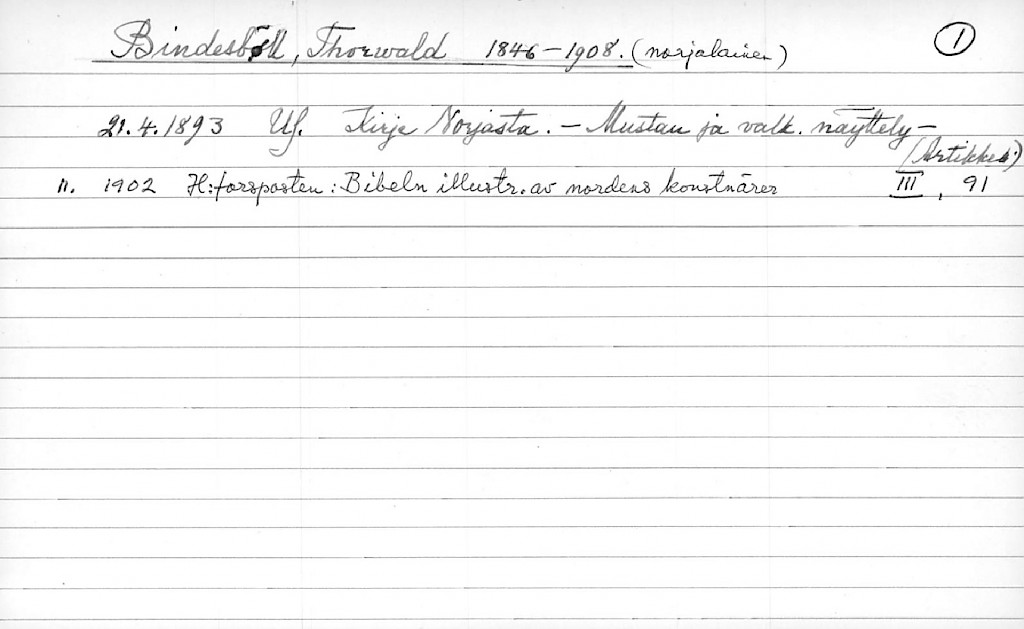 Bindesböll, Thorwald 1846-1908. (norjalainen) 1
21.4.1893 Uf. Kirje Norjasta. - Mustan ja valk. näyttely -
(Artikkeli)
n. 1902 H:forsposten: Bibeln illustr. av nordens konstnärer III, 91